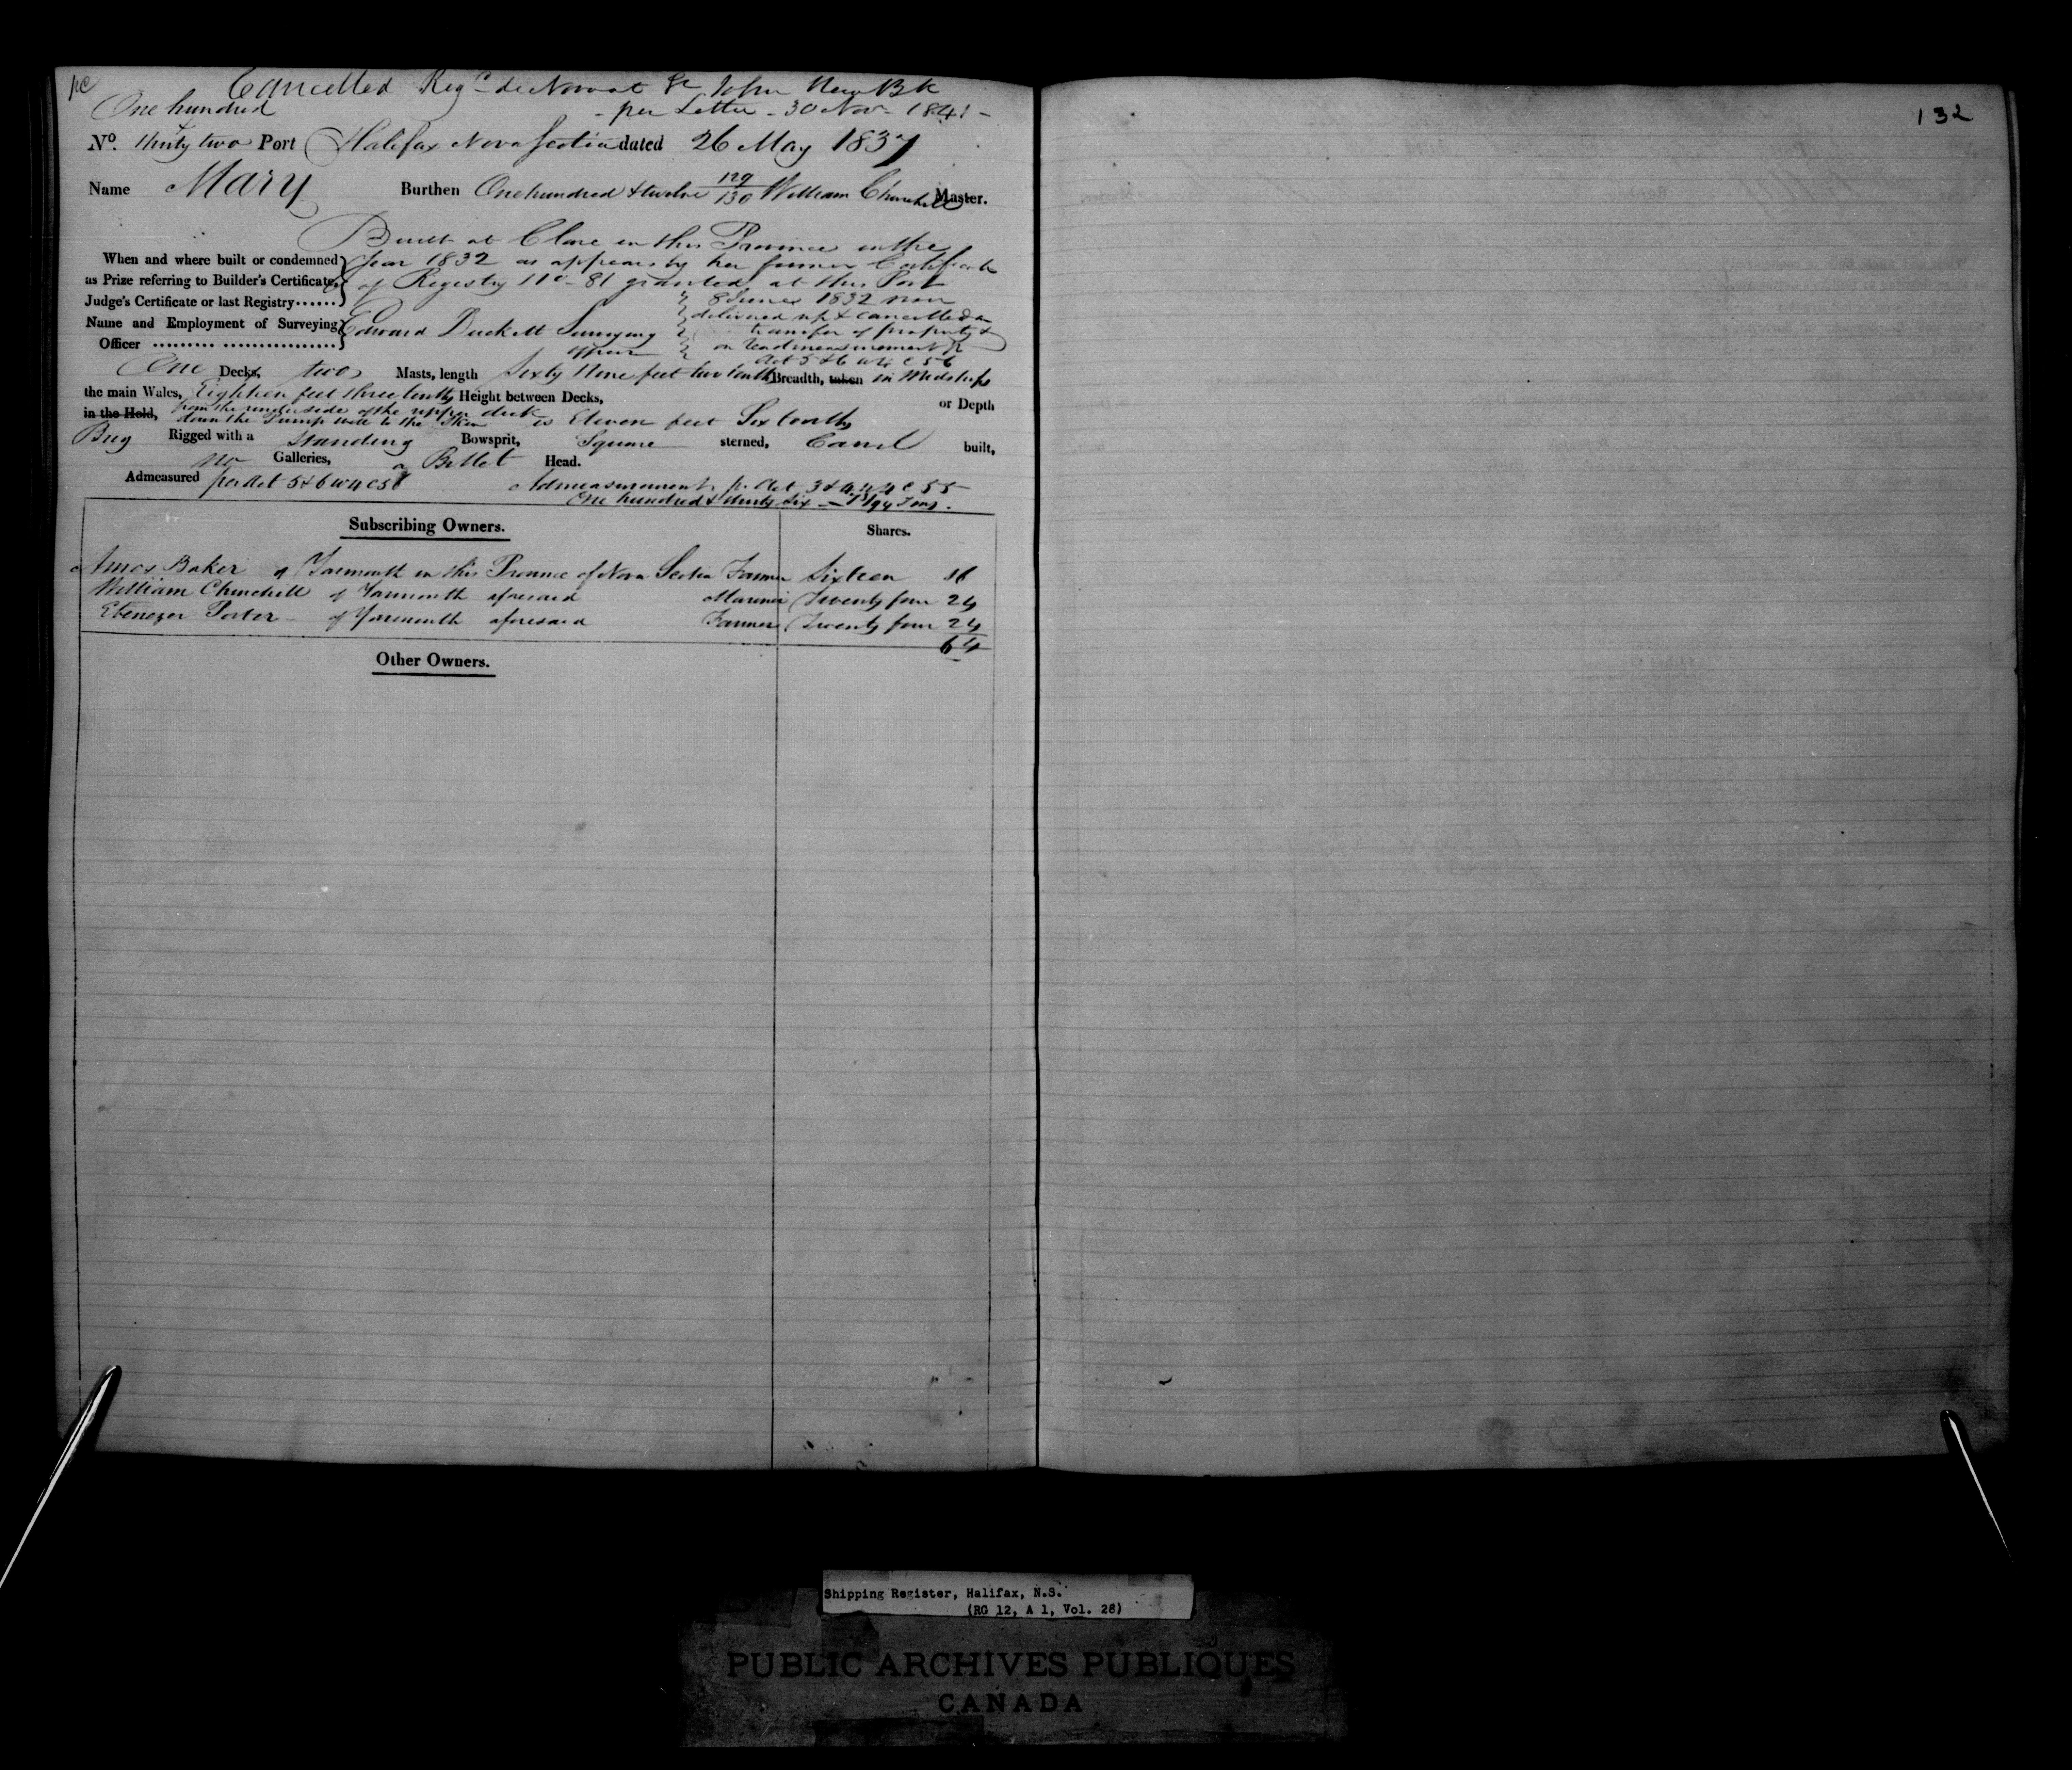 Cancelled Reg<sup>d</sup> de Novo at St John New Bk
One hundred - per Letter - 30 Nov - 1841 -
No. Thirty two Port Halifax Nova Scotia dated 26 May 1837
132
Name Mary Burthen One hundred & twelve 129/130 William Churchill Master.
Built at Clare in this Province in the
When and where built or condemned year 1832 as appears by her former Certificate
as Prize referring to Builder's Certificate, of Registry No - 81 granted at this Port
Judge's Certificate or last Registry...... 8 June 1832 now
Name and Employment of Surveying Edward Duckett Surveying delivered up & cancelled on
Officer ......... ................ Officer transfer of property &
on readmeasurement pr
Act 5 & 6 W 4 C 56
One Decks, two Masts, length Sixty Nine feet two tenths Breadth, taken in Midships
the main Wales, Eighteen feet three tenths Height between Decks, or Depth
in the Hold, from the underside of the upper deck
down the Pump well to the Skin is Eleven feet Six tenths
Brig Rigged with a Standing Bowsprit, Square sterned, Carvel built,
no Galleries, a Billet Head.
Admeasured per Act 5 & 6 W 4 C 56 Admeasurement p. Act 3 & 4 W 4 C 55
One hundred & thirty six - /94 Tons.
Subscribing Owners. Shares.
Amos Baker of Yarmouth in this Province of Nova Scotia Farmer Sixteen 16
William Churchill of Yarmouth aforesaid Mariner Twenty four 24
Ebenezer Porter - of Yarmouth aforesaid Farmer Twenty four 24
64
Other Owners.
Shipping Register, Halifax, N.S.
(RG 12, A 1, Vol. 28)
PUBLIC ARCHIVES PUBLIQUES
CANADA